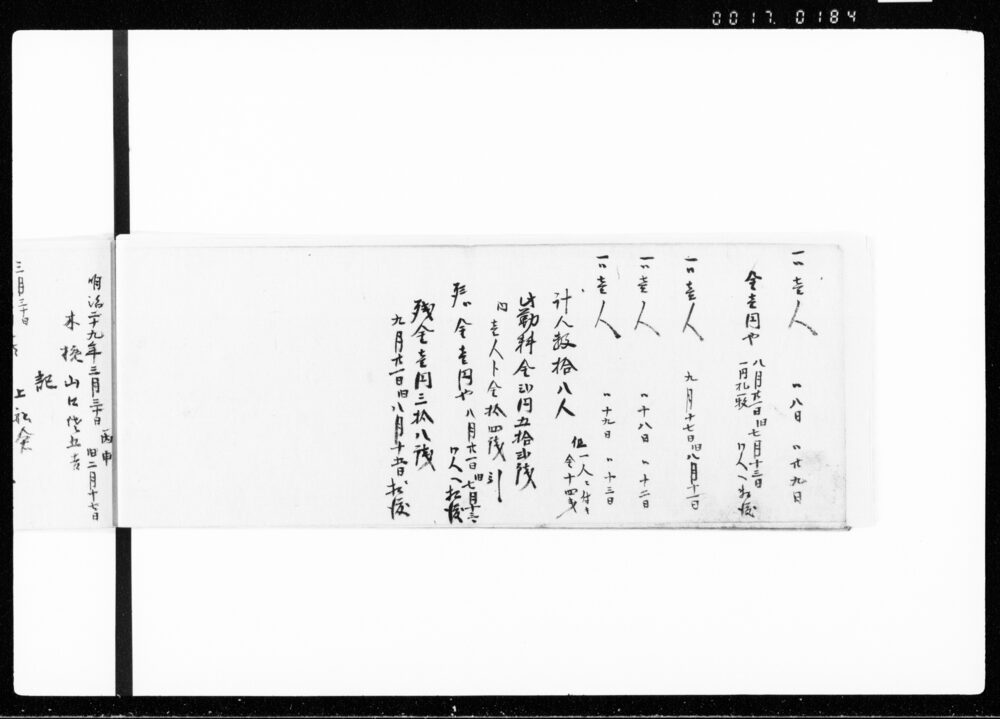 0017 0184
一〃壱人 〃八日 〃廿九日
金壱円や 八月廿一日旧七月十三日
一円札一枚 同人へ相渡
一〃壱人 九月十七日旧八月十一日
一〃壱人 〃十八日 〃十二日
一〃壱人 〃十九日 〃十三日
計人数拾八人 但一人ニ付き
金十四戋
此勤料金弐円五拾弐銭
内壱人ト金拾四銭引
金壱円や 八月廿一日旧七月十三
同人へ相渡
残金壱円三拾八銭
九月廿一日旧八月十五日相渡
明治二十九年三月三十日 丙申
旧二月十七日
山口
記
三月三十日 上